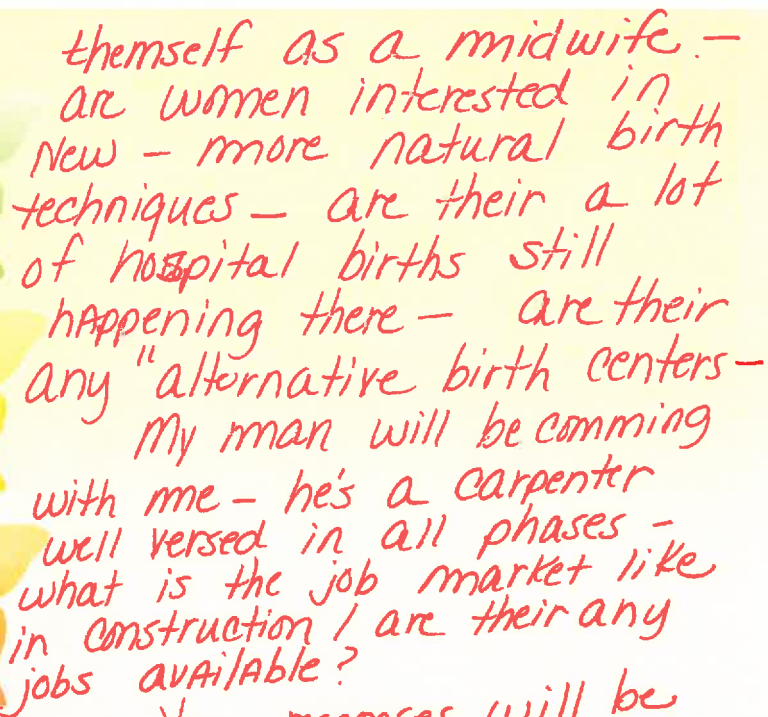 themself as a midwife –
are women interested in
New – more natural birth
techniques – are their a lot
of hospital births still
hAppening there – are their
any "alternative birth centers –
My man will be comming
with me – he's a carpenter
well versed in all phases –
what is the job market like
in construction / are their any
jobs avAilAble?
will be